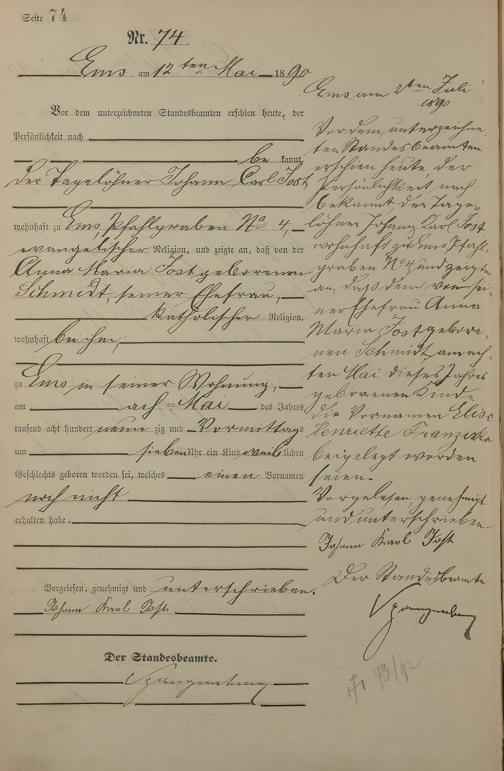 Seite 74
Nr. 74
Ems am 12ten Mai 1890
Vor dem unterzeichneten Standesbeamten erschien heute, der
Persönlichkeit nach
be kannt,
der Tagelöhner Johann Carl Jost
wohnhaft zu Ems Pfahlgraben No 4,
evangelischer Religion, und zeigte an, daß von der
Anna Maria Jost geborenen
Schmidt, seiner Ehefrau,
katholischer Religion,
wohnhaft bei ihm,
zu Ems in seiner Wohnung,
am acht ten Mai des Jahres
tausend acht hundert neun zig und Vormittags
um sieben Uhr ein Kind weib lichen
Geschlechts geboren worden sei, welches einen Vornamen
noch nicht
erhalten habe.
Vorgelesen, genehmigt und unterschrieben.
Johann Karl Jost
Der Standesbeamte.
Spangenberg
Ems am 2ten Juli
1890
Vor dem unterzeichne-
ten Standesbeamten
erschien heute, der
Persönlichkeit nach
bekannt der Tage-
löhner Johann Karl Jost
wohnhaft zu Ems Pfahl-
graben No 4 und zeigte
an, daß dem von sei-
ner Ehefrau Anna
Maria Jost gebore-
nen Schmidt, am ach-
ten Mai dieses Jahres
geborenen Kinde
die Vornamen Elise
Henriette Franziska
beigelegt worden
seien.
Vorgelesen genehmigt
und unterschrieben.
Johann Karl Jost
Der Standesbeamte
Spangenberg
93/92